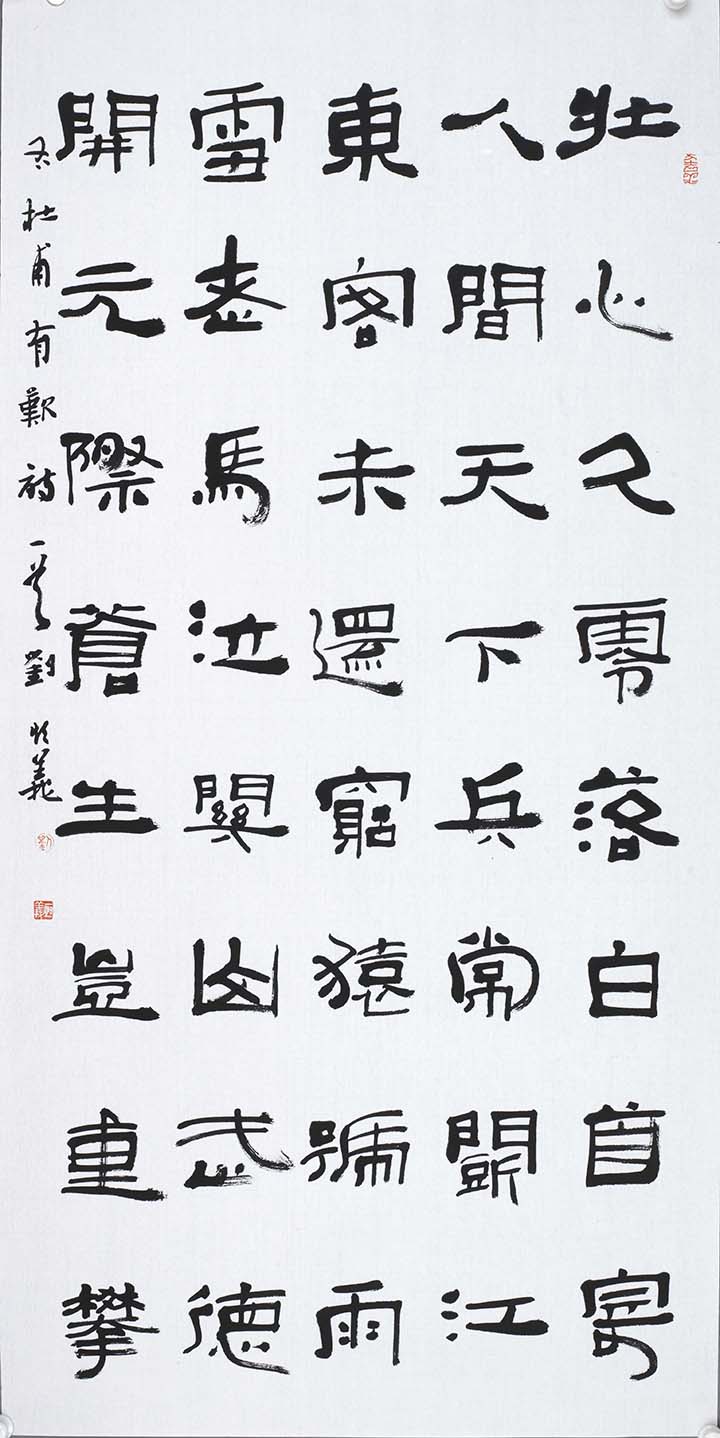 壯心久零落白首寄
人間天下兵常鬭江
東客未還窮猿號雨
雪老馬泣關山武德
開元際蒼生豈重攀
右杜甫有歎詩一劉義